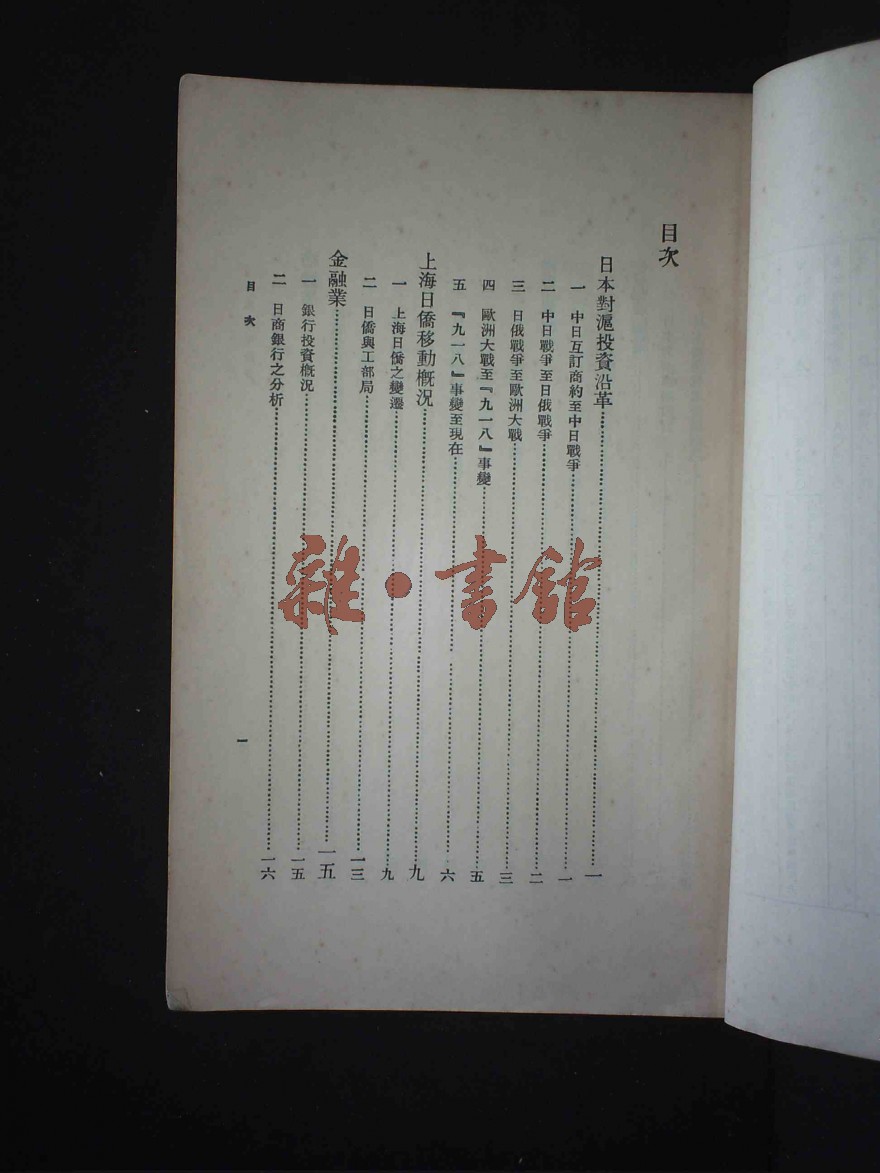 目次
日本對滬投資沿革……一
一 中日互訂商約至中日戰爭……一
二 中日戰爭至日俄戰爭……二
三 日俄戰爭至歐洲大戰……三
四 歐洲大戰至『九一八』事變……五
五 『九一八』事變至現在……六
上海日僑移動概況……九
一 上海日僑之變遷……九
二 日僑與工部局……一三
金融業……一五
一 銀行投資概況……一五
二 日商銀行之分析……一六
目次
一
雜·書館